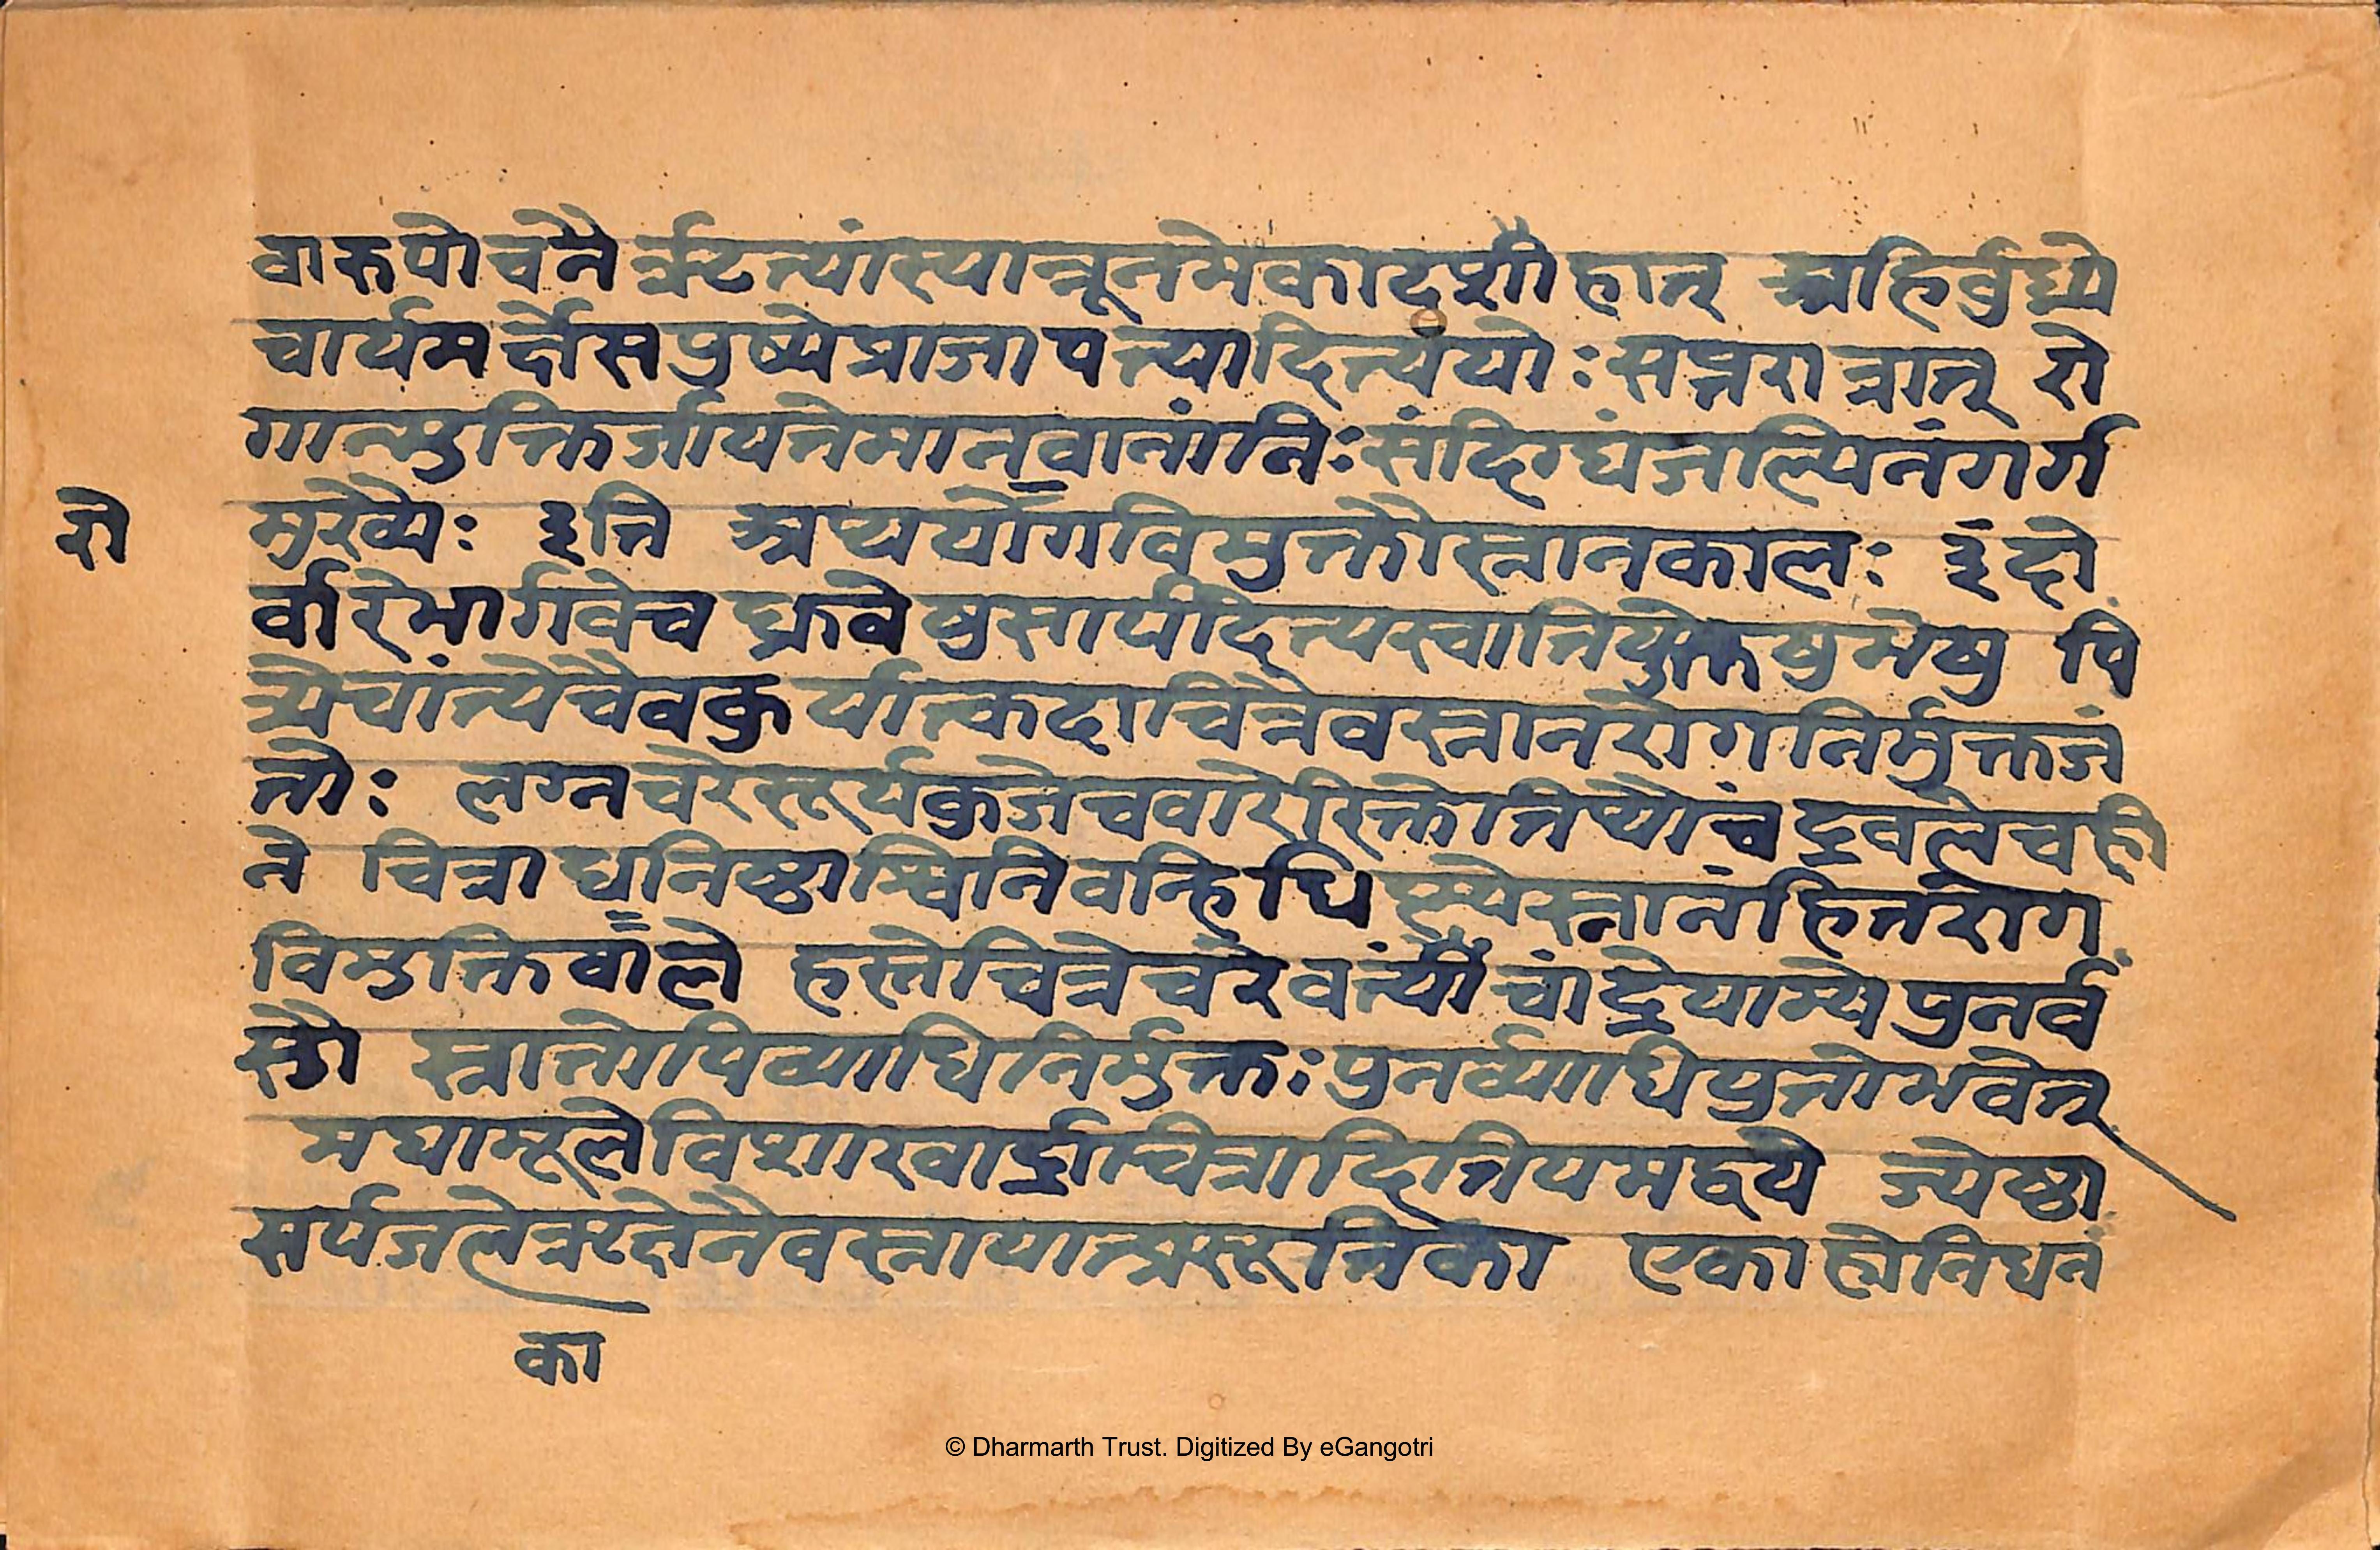 वारुपो चनै र्न्नृटत्यांस्यान्नूनमेकादशाहात् अहिर्वुध्ये
चार्यमर्दौसपुष्येप्राजापत्यादित्ययोः सप्तरात्रात् रो
गान्मुक्तिर्जायतेमानवानांनिः संदिग्धंजल्पितंगर्ग
रो
मुख्यैः इति अथ योगविमुक्तौस्नानकालः इंदो
र्वारेभार्गवेच ध्रुवेषुसार्पादित्यस्वातियुक्तेषुभेषु पि
त्र्येचांत्येचैवकुर्यात्कदाचिन्नैवस्नानंरोगनिर्मुक्तजं
तोः लग्नचरेसूर्यकुजेचवारेरिक्तेतिथौचंद्रवलेचही
ने चित्राधनिष्ठाश्विनिवन्हिधिष्ण्येस्नानंहितंरोग
विमुक्तिवाले हस्तेचित्रेचरेवत्यांचांद्रेयाम्येपुनर्व
सौ स्नातोपिव्याधिनिर्मुक्तः पुनर्व्याधियुतोभवेत्
मघामूलेविशाखार्द्राचित्रादितियमद्वये ज्येष्ठा
सर्पजलेन्नरक्षेनैवस्नायात्प्रसूतिका एकाह्नोनिधनं
का
© Dharmarth Trust. Digitized By eGangotri